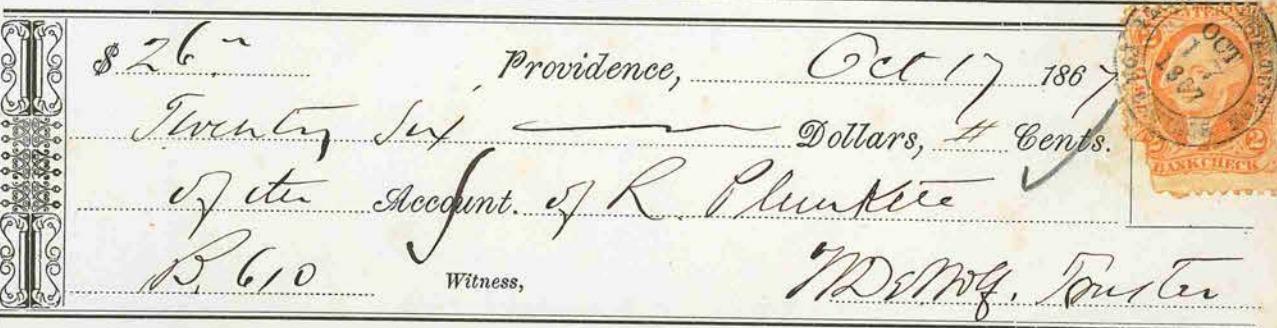 $ 26 Providence, Oct 17 1867
Twenty Six Dollars, # Cents.
of the Account. of R. Plunkett
B. 610 Witness, WDeWolf. Trustee
OCT
17
1867
2 2
BANK CHECK